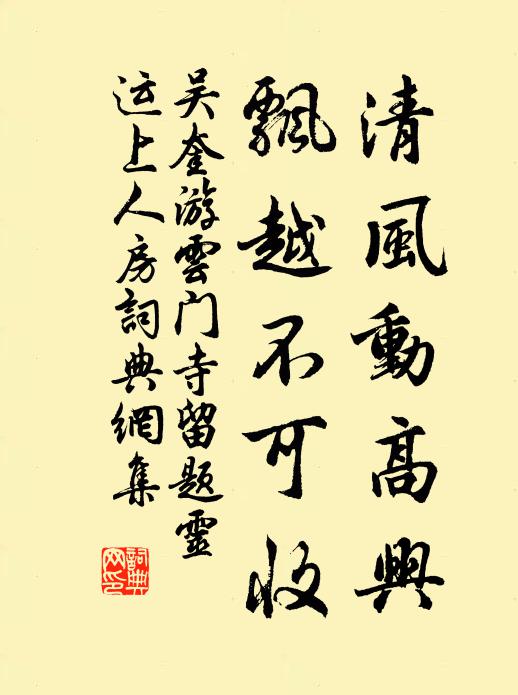 清風動高興
飄越不可收
吴奎游雲门寺留題靈
运上人房詞典網集
詞典网印